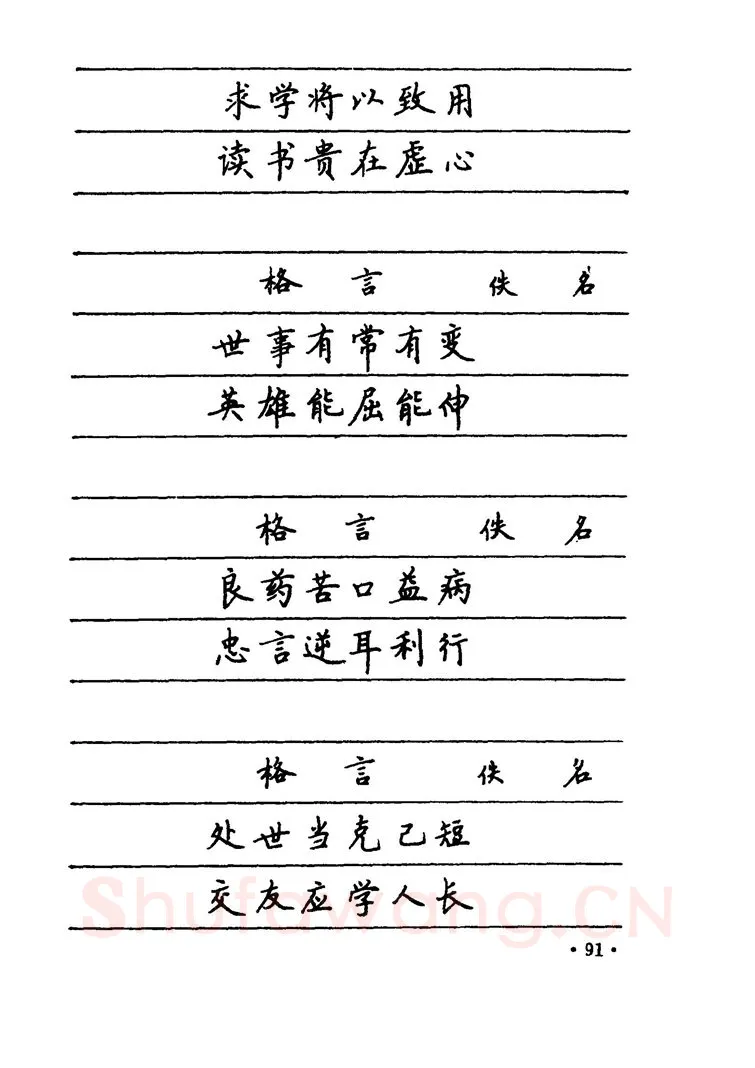 求学将以致用
读书贵在虚心
格言 佚名
世事有常有变
英雄能屈能伸
格言 佚名
良药苦口益病
忠言逆耳利行
格言 佚名
处世当克己短
交友应学人长
Shufawang.CN
·91·